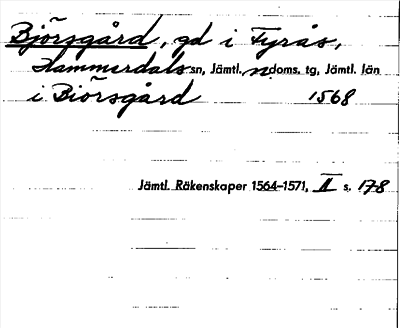 Björsgård, gd i Fyrås,
Hammerdals sn, Jämtl. n doms. tg, Jämtl. län
i Biörsgård 1568
Jämtl. Räkenskaper 1564-1571, II s. 178